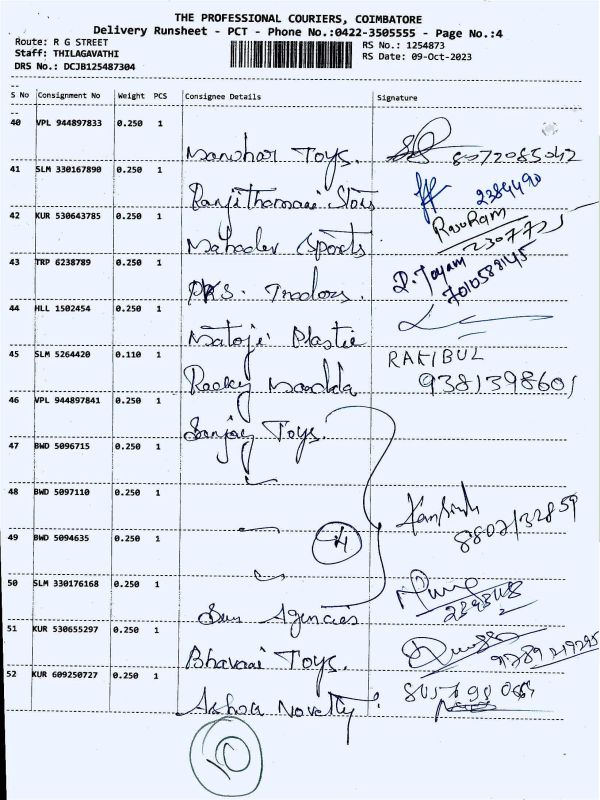 THE PROFESSIONAL COURIERS, COIMBATORE
Delivery Runsheet - PCT - Phone No.:0422-3505555 - Page No.:4
Route: R G STREET
RS No.: 1254873
Staff: THILAGAVATHI
RS Date: 09-Oct-2023
DRS No.: DCJB125487304
S No Consignment No Weight PCS Consignee Details Signature
40 VPL 944897833 0.250 1
Manohar Toys. 8072085042
41 SLM 330167890 0.250 1
2384490
42 KUR 530643785 0.250 1
RajuRam
Mahadev Sports 2307725
43 TRP 6238789 0.250 1
PKS. Tradors. 7010588145
44 HLL 1502454 0.250 1
Matoji Plastic
45 SLM 5264420 0.110 1
RAKIBUL
Rocky 9381398601
46 VPL 944897841 0.250 1
Sanjay Toys.
47 BWD 5096715 0.250 1
48 BWD 5097110 0.250 1
49 BWD 5094635 0.250 1
4
8807132859
50 SLM 330176168 0.250 1
Sun Agencies
51 KUR 530655297 0.250 1
Bhavani Toys.
52 KUR 609250727 0.250 1
Novelty
10